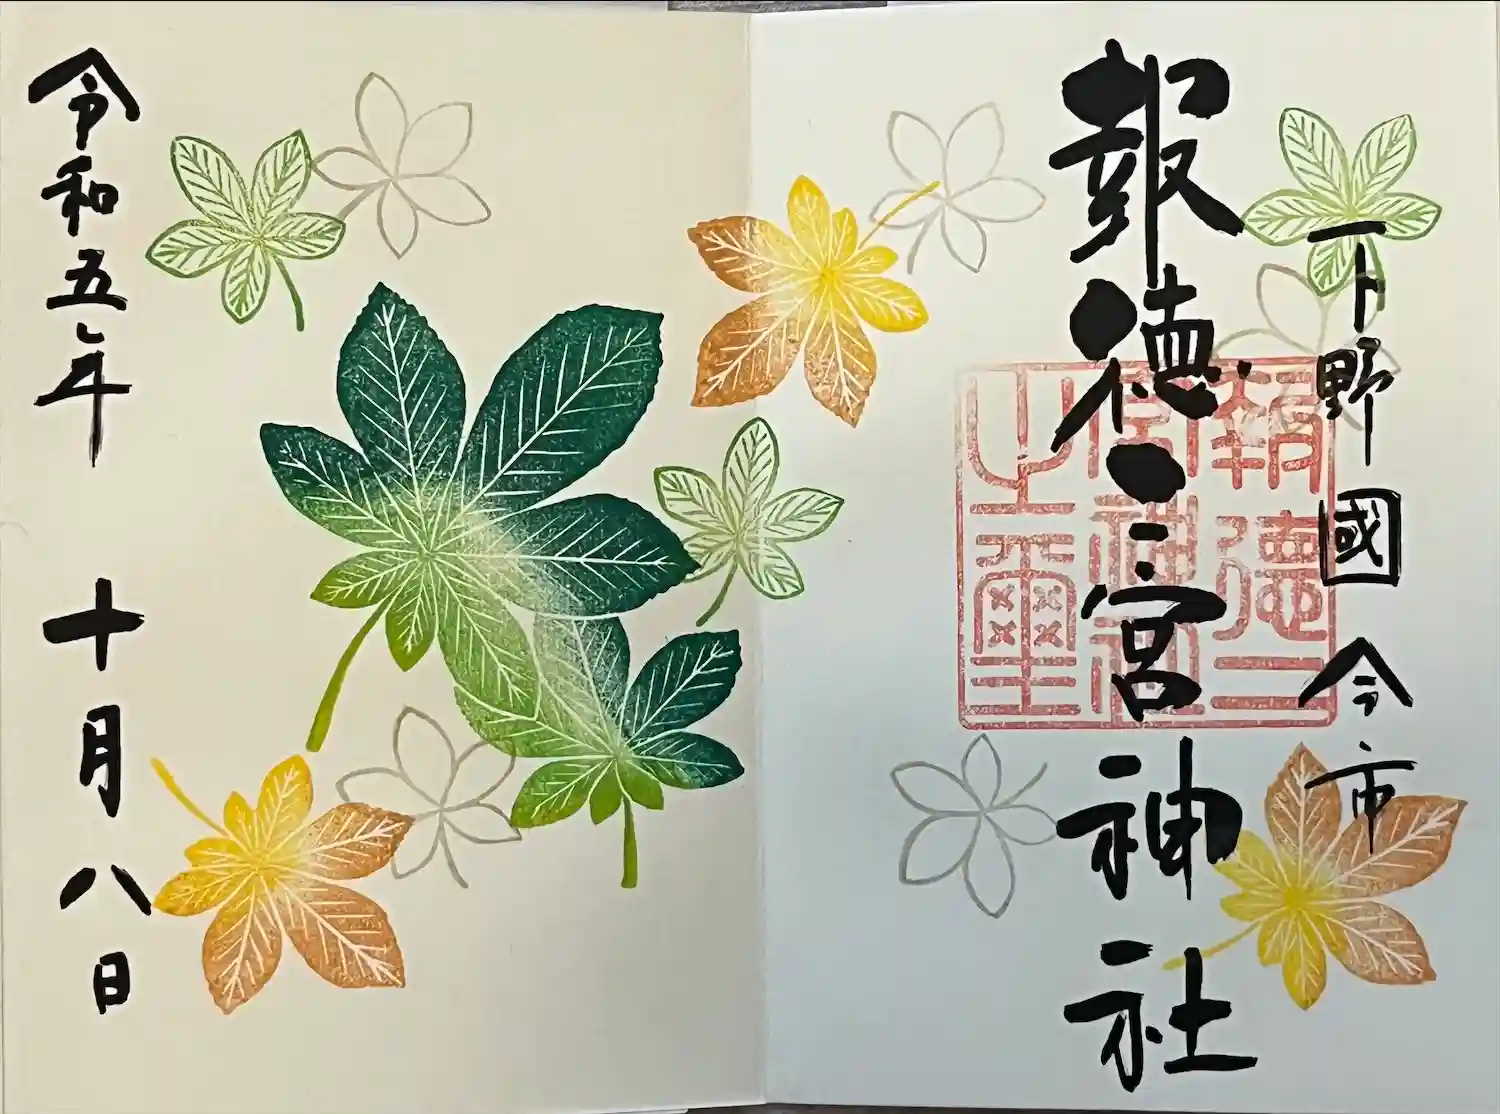 下野國今市
報徳二宮神社
報徳二
宮神社
之璽
令和五年 十月八日